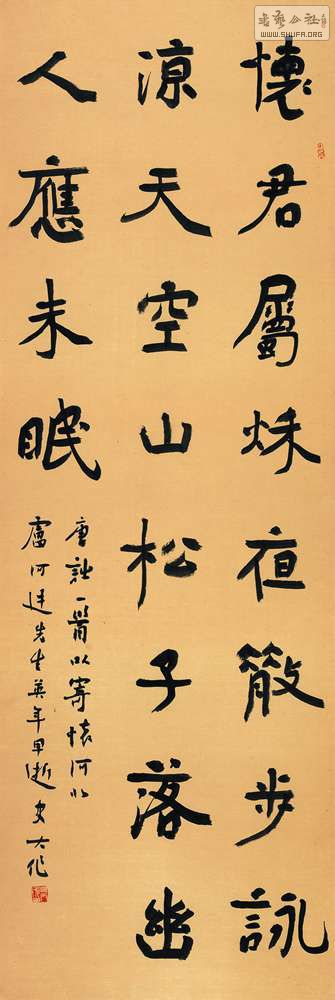 書藝公社
WWW.SHUFA.ORG
懷君屬秋夜散步詠
涼天空山松子落幽
人應未眠
唐詩一首以寄懷河北
盧河先生英年早逝